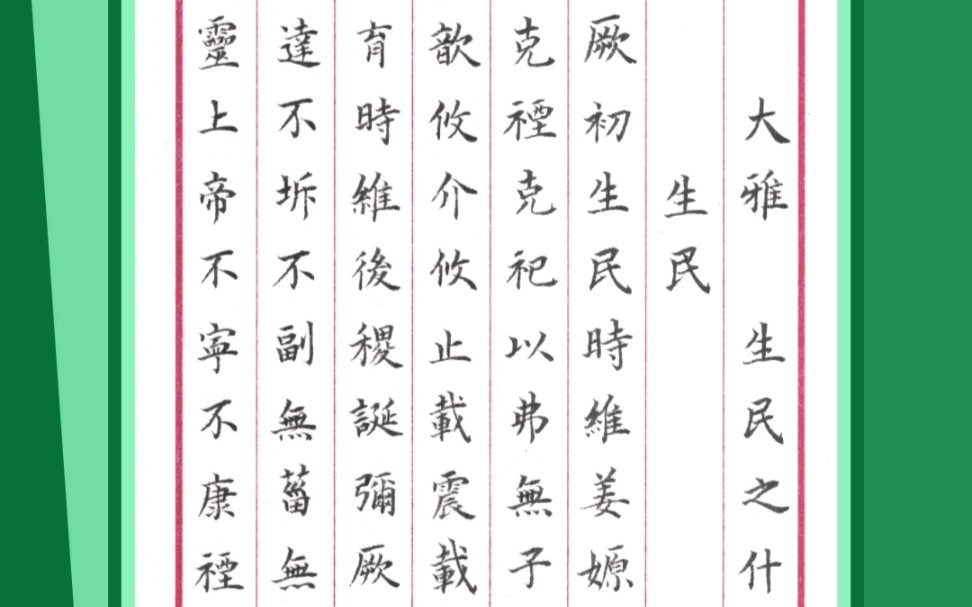 大雅 生民之什
生民
厥初生民時維姜嫄
克禋克祀以弗無子
歆攸介攸止載震載
育時維後稷誕彌厥
達不坼不副無菑無
靈上帝不寧不康禋